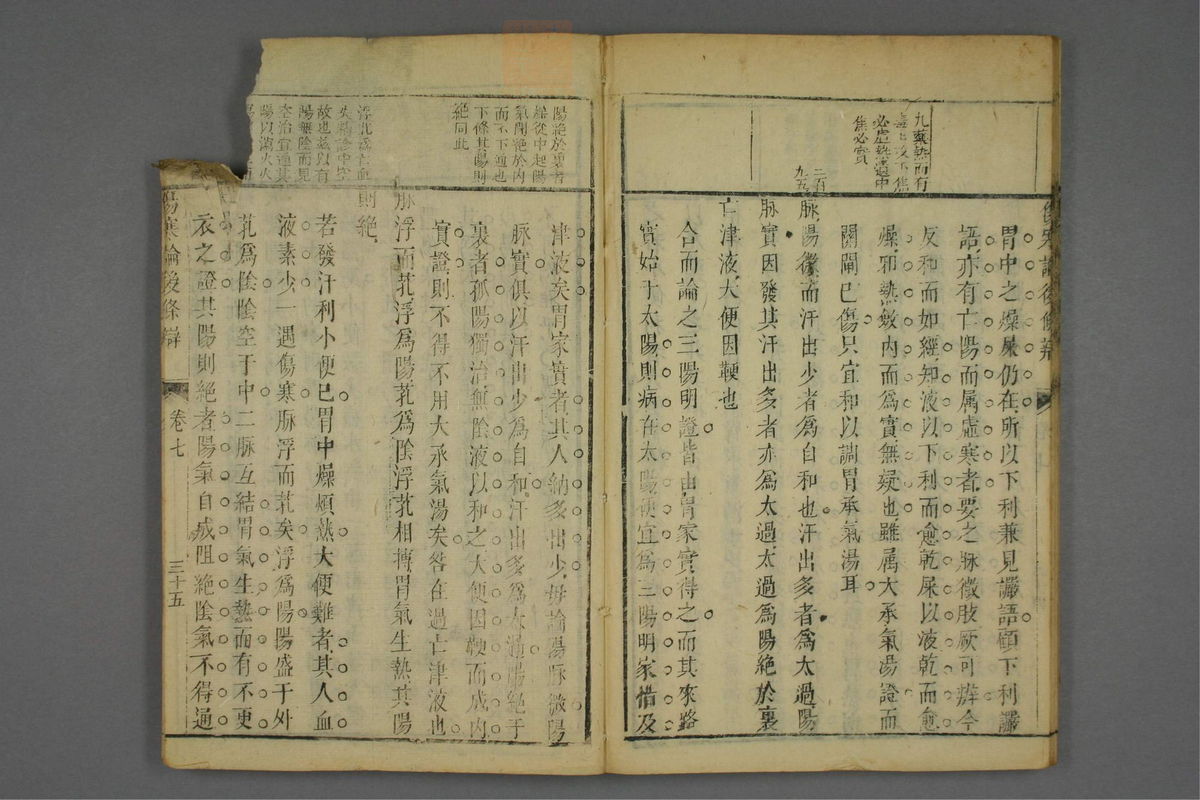 九藥熱而有
必虛熱還中
焦必實
二百
九五
胃中之燥屎仍在所以下利兼見讝語頋下利讝
語亦有亡陽而属虛寒者要之脉徵肢厥可辨今
反和而如經知液以下利而愈乾屎以液乾而愈
燥邪熱斂内而爲實無疑也雖属大承氣湯證而
關閘已傷只宜和以調胃承氣湯耳
脉陽微而汗出少者爲自和也汗出多者爲太過陽
脉實因發其汗出多者亦爲太過太過爲陽絶於裏
亡津液大便因鞕也
合而論之三陽明證皆由胃家實得之而其來路
實始于太陽則病在太陽便宜爲三陽明家惜及
陽絶於裏者
燥從中起陽
氣閉絶於内
而不下通也
下條其陽則
絶同此
津液矣胃家實者其人納多出少毋論陽脉微陽
脉實俱以汗出少爲自和汗出多爲太過陽絶于
裏者孤陽獨治無陰液以和之大便因鞕而成内
實證則不得不用大承氣湯矣咎在過亡津液也
脉浮而芤浮爲陽芤爲陰浮芤相搏胃氣生熱其陽
則絶
浮芤爲亡血
失精診中空
故也兹以有
陽無陰而見
空治宜通其
陽以瀉火火
若發汗利小便已胃中燥煩熱大便難者其人血
液素少一遇傷寒脉浮而芤矣浮爲陽陽盛于外
芤爲陰陰空于中二脉互結胃氣生熱而有不更
衣之證其陽則絶者陽氣自戒阻絶陰氣不得通
傷寒論後條辯
卷七
三十五